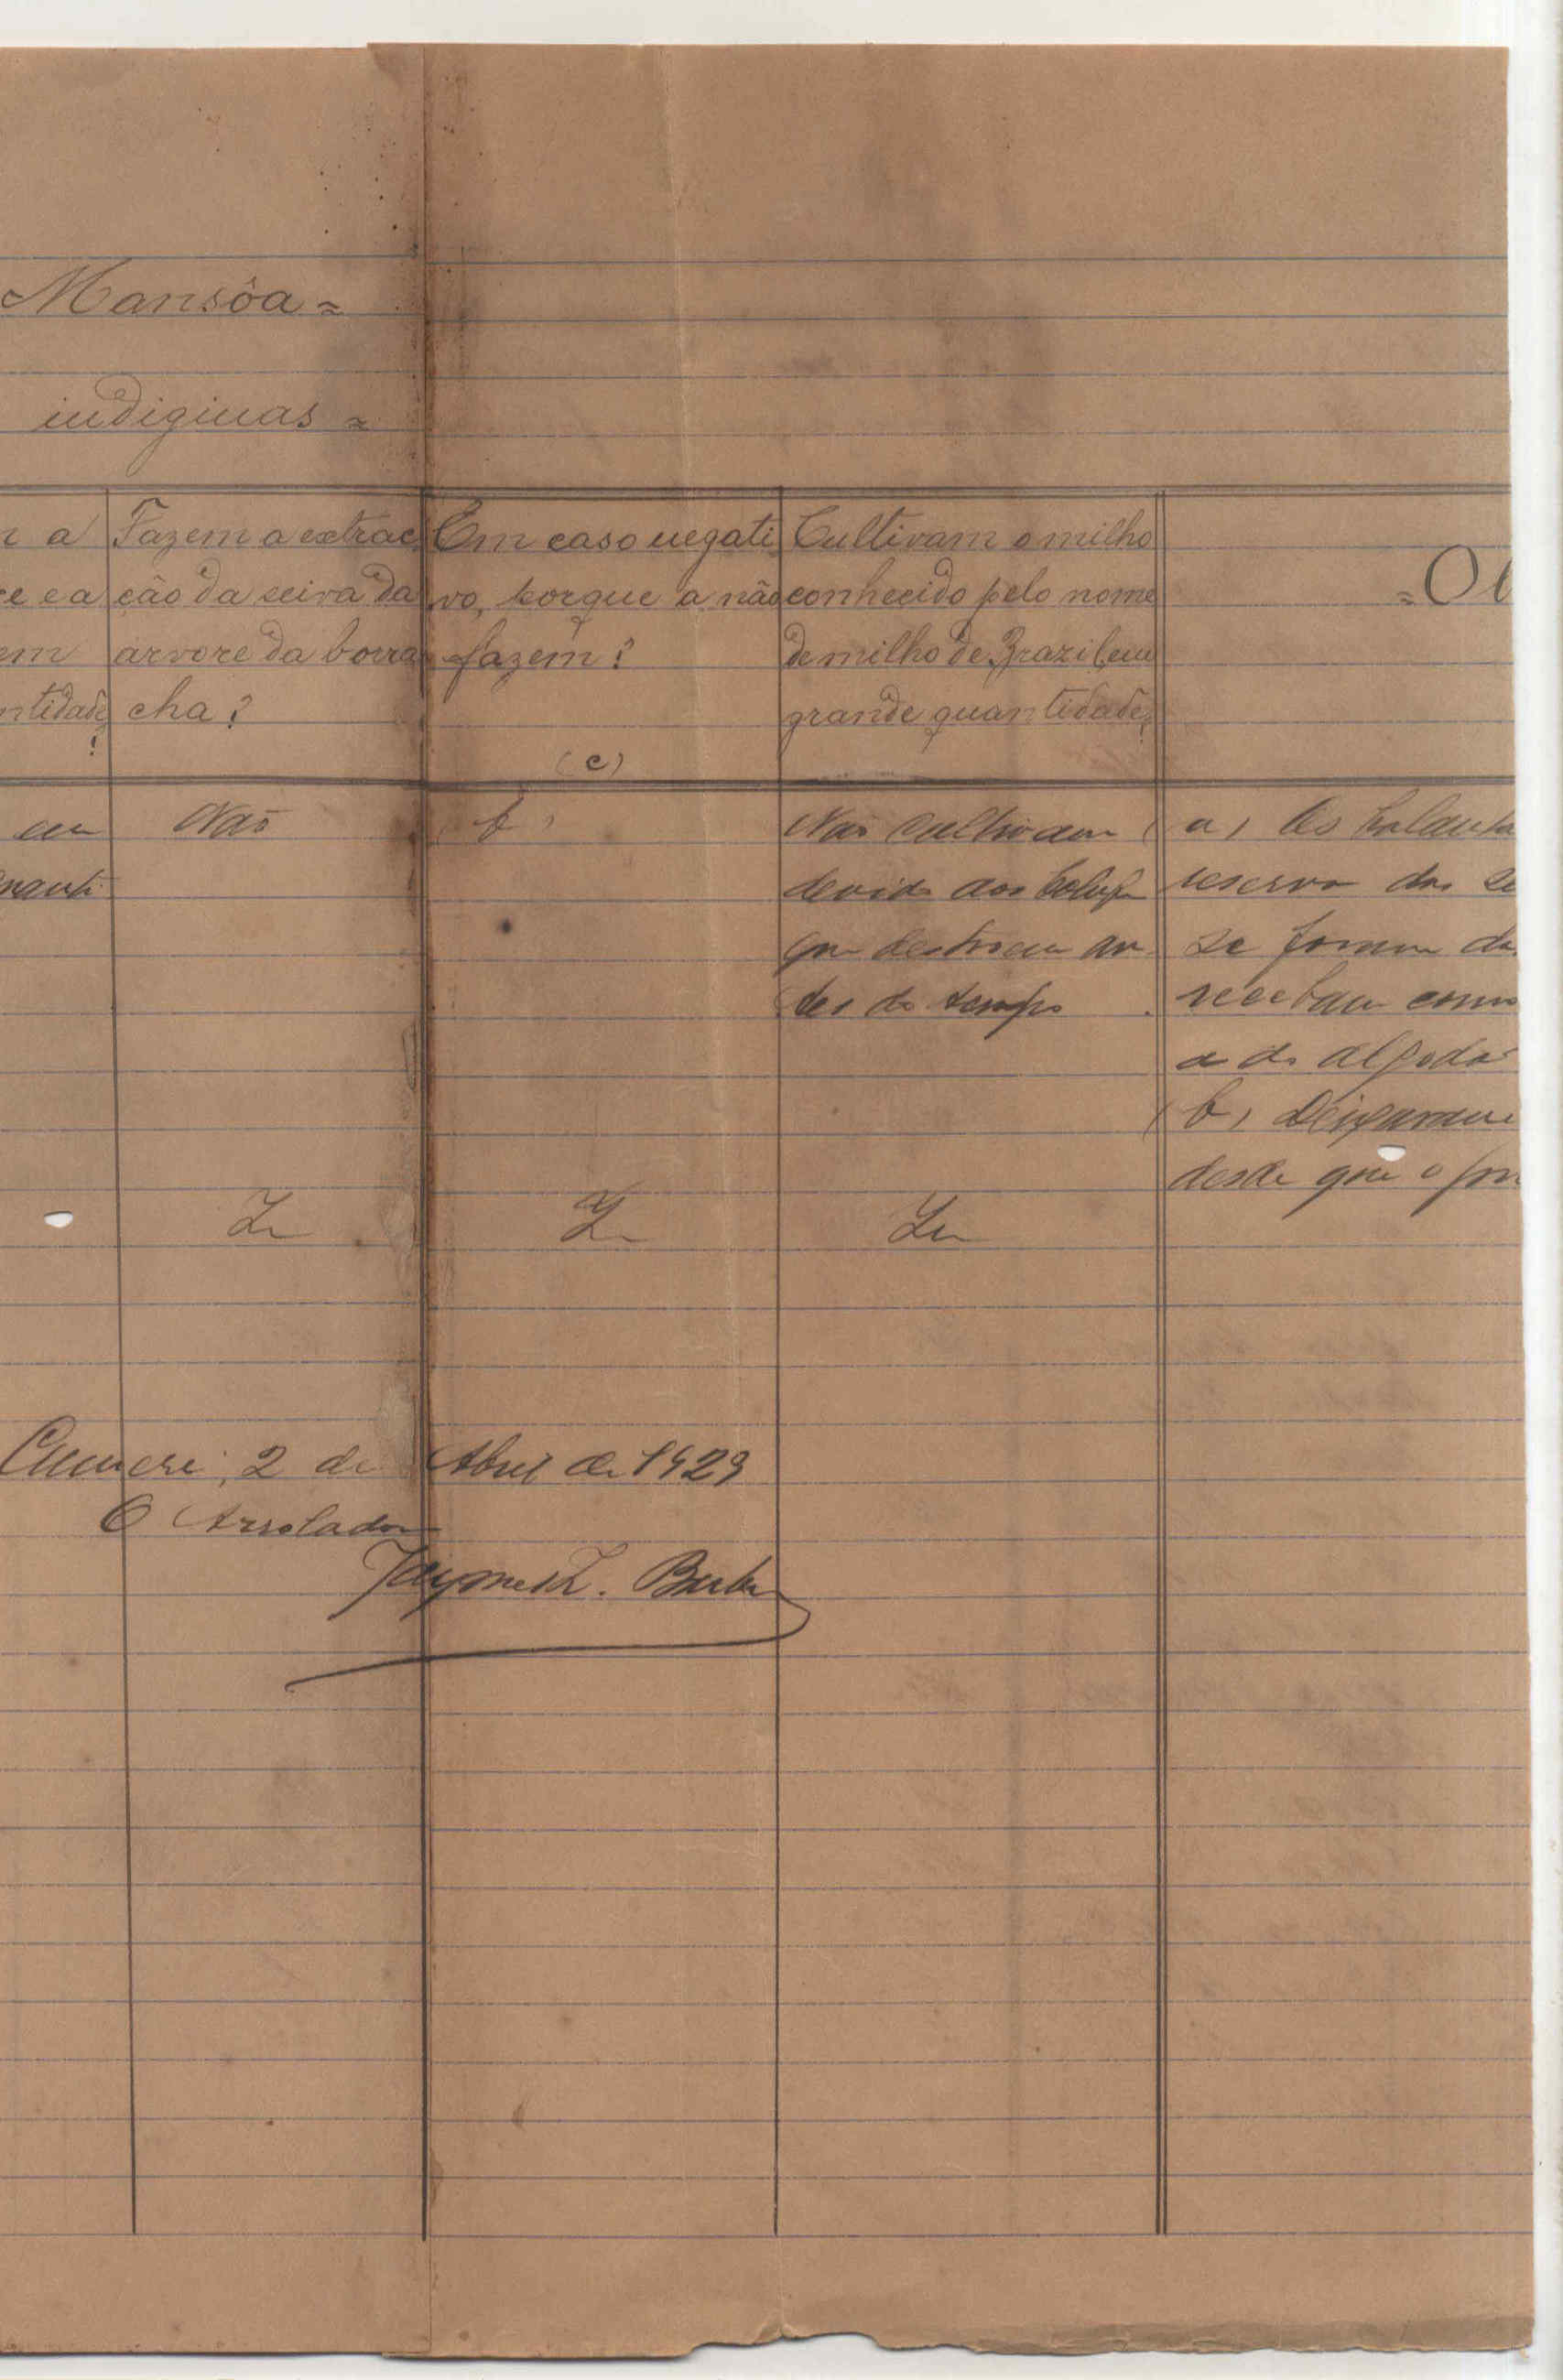 Mansôa =
indiginas =
a
e e a
em
ntidade
?
Fazem a extrac
ção da seiva da
arvore da borra
cha?
Em caso negati
vo, porque a não
fazem?
(c)
Cultivam o milho
conhecido pelo nome
de milho de Brazil, em
grande quantidade?
= Ol
em
Não
( b )
Não cultivam
devido aos
que destroem an
tes do tempo
( a ) Os balanta
reserva das se
se forem da
recebem como
a do algodão
( b ) Deixaram
desde que o
2 de Abril de 1929
O Arrolador